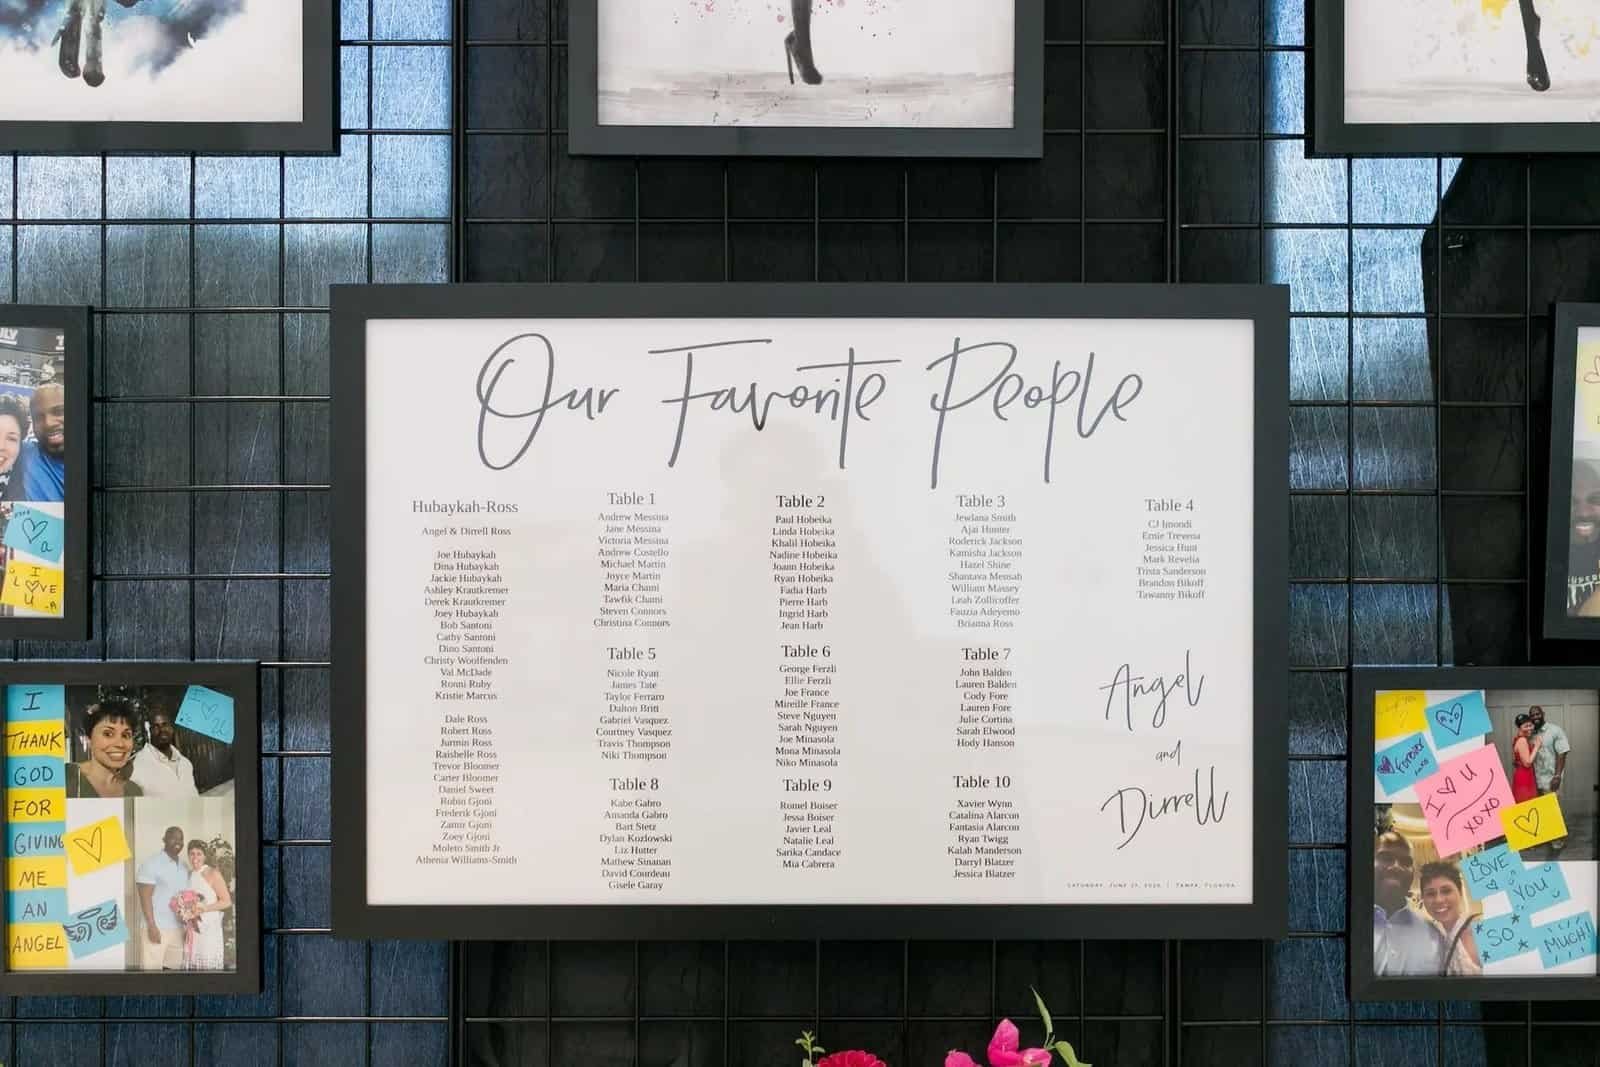 Our Favorite People
Hubaykah-Ross
Angel & Dirrell Ross
Joe Hubaykah
Dina Hubaykah
Jackie Hubaykah
Ashley Krautkremer
Derek Krautkremer
Joey Hubaykah
Bob Santoni
Cathy Santoni
Dino Santoni
Christy Woolfenden
Val McDade
Ronni Ruby
Kristie Marcus
Dale Ross
Robert Ross
Jurmin Ross
Raishelle Ross
Trevor Bloomer
Carter Bloomer
Daniel Sweet
Robin Gjoni
Frederik Gjoni
Zamir Gjoni
Zoey Gjoni
Moleto Smith Jr
Athenia Williams-Smith
Table 1
Andrew Messina
Jane Messina
Victoria Messina
Andrew Costello
Michael Martin
Joyce Martin
Maria Chami
Tawfik Chami
Steven Connors
Christina Connors
Table 2
Paul Hobeika
Linda Hobeika
Khalil Hobeika
Nadine Hobeika
Joann Hobeika
Ryan Hobeika
Fadia Harb
Pierre Harb
Ingrid Harb
Jean Harb
Table 3
Jewlana Smith
Ajai Hunter
Roderick Jackson
Kamisha Jackson
Hazel Shine
Shantava Mensah
William Massey
Leah Zollicoffer
Fauzia Adeyemo
Brianna Ross
Table 4
CJ Imondi
Ernie Trevena
Jessica Hunt
Mark Revelia
Trista Sanderson
Brandon Bikoff
Tawanny Bikoff
Table 5
Nicole Ryan
James Tate
Taylor Ferraro
Dalton Britt
Gabriel Vasquez
Courtney Vasquez
Travis Thompson
Niki Thompson
Table 6
George Ferzli
Ellie Ferzli
Joe France
Mireille France
Steve Nguyen
Sarah Nguyen
Joe Minasola
Mona Minasola
Niko Minasola
Table 7
John Balden
Lauren Balden
Cody Fore
Lauren Fore
Julie Cortina
Sarah Elwood
Hody Hanson
Table 8
Kabe Gabro
Amanda Gabro
Bart Stetz
Dylan Kozlowski
Liz Hutter
Mathew Sinanan
David Courdeau
Gisele Garay
Table 9
Romel Boiser
Jessa Boiser
Javier Leal
Natalie Leal
Sarika Candace
Mia Cabrera
Table 10
Xavier Wynn
Catalina Alarcun
Fantasia Alarcun
Ryan Twigg
Kalah Manderson
Darryl Blatzer
Jessica Blatzer
Angel
and
Dirrell
Saturday, June 27, 2020 | Tampa, Florida
a
I
LOVE
U
-A
I
THANK
GOD
FOR
GIVING
ME
AN
ANGEL
Forever
XOXO
I U
XOXO
LOVE
YOU
SO
MUCH!